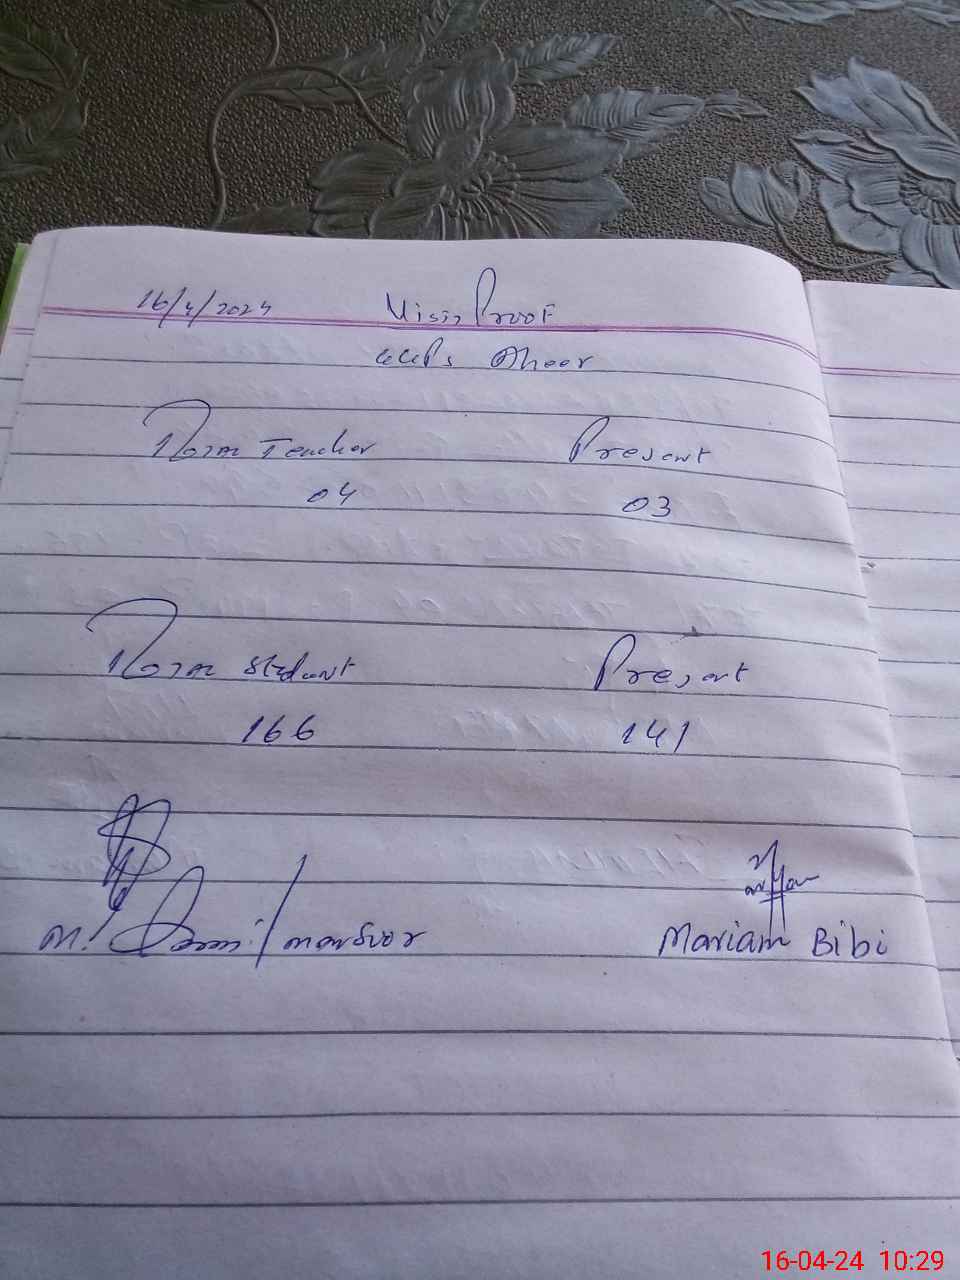 16/4/2024 Visit Proof
GGPS Dheer
Teacher Present
04 03
Student Present
166 141
M. Jamil mansoor Mariam Bibi
16-04-24 10:29